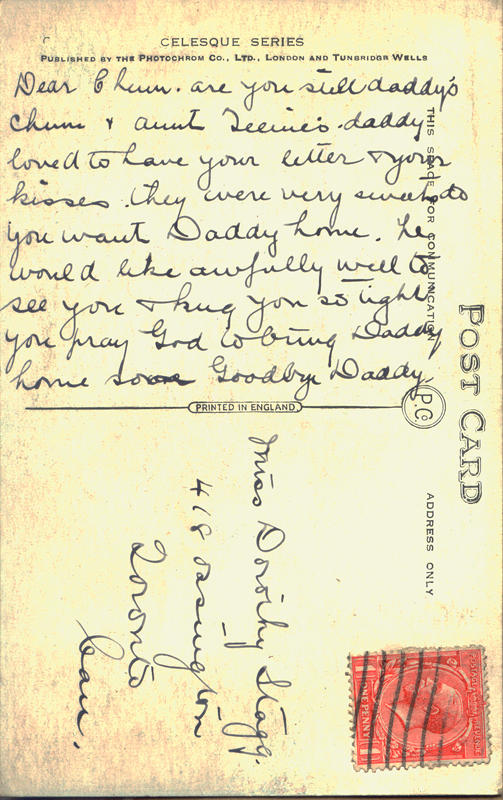 CELESQUE SERIES
PUBLISHED BY THE PHOTOCHROM CO., LTD., LONDON AND TUNBRIDGE WELLS
Dear Chum. are you still daddy's
chum & aunt daddy
loved to have your letter & your
kisses. they were very sweet do
you want Daddy home. he
would like awfully well to
see you & hug you so tight
you pray God to bring Daddy
home soon Goodbye Daddy.
THIS SPACE FOR COMMUNICATION
POST CARD
P.Co
PRINTED IN ENGLAND.
ADDRESS ONLY.
Miss Dorothy Stagg.
418 Ossington
Toronto
Can.
ONE PENNY